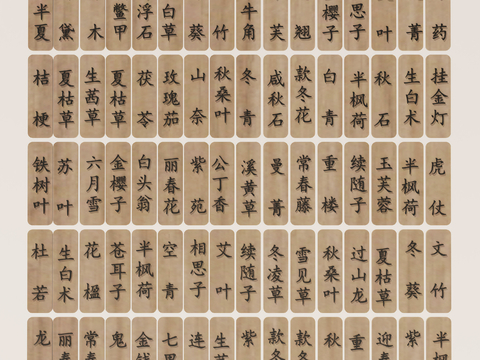 半夏
黛
木
鳖甲
浮石
白草
葵
竹
牛角
芙
翘
樱子
思子
叶
菁
药
桔梗
夏枯草
生茜草
夏枯草
茯苓
玫瑰茄
山奈
秋桑叶
冬青
咸秋石
款冬花
白青
半枫荷
秋石
生白术
挂金灯
铁树叶
苏叶
六月雪
金樱子
白头翁
丽春花
紫苑
公丁香
溪黄草
曼菁
常春藤
重楼
续随子
玉芙蓉
半枫荷
虎仗
杜若
生白术
花楹
苍耳子
半枫荷
空青
相思子
艾叶
续随子
冬凌草
雪见草
秋桑叶
过山龙
夏枯草
冬葵
文竹
龙
丽春
常春
鬼
金
七
连
生
紫
款冬
款冬
秋
重
迎春
紫
半枫